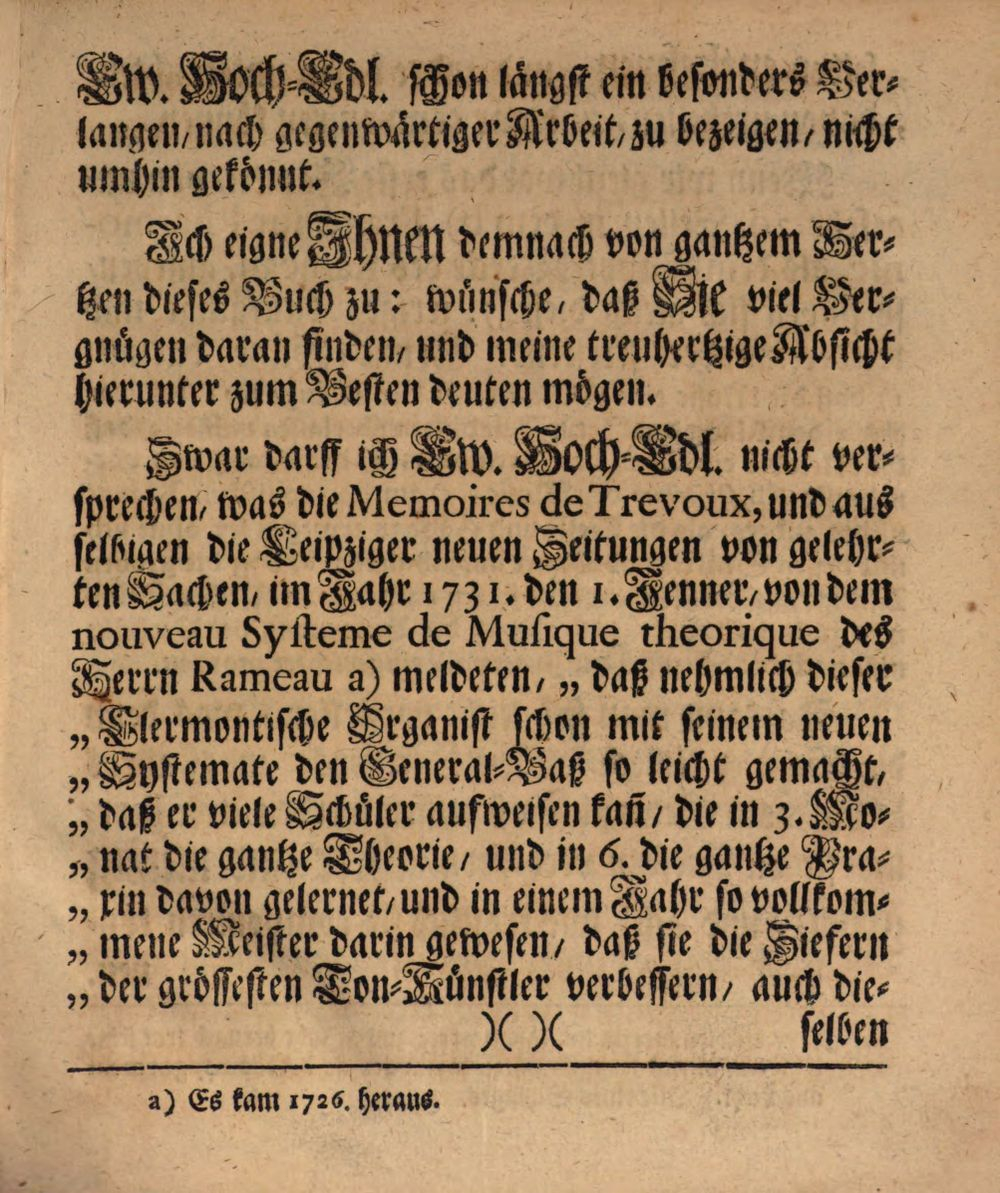 Ew. Hoch-Edl. schon längst ein besonders Ver-
langen/ nach gegenwärtiger Arbeit/ zu bezeigen/ nicht
umhin gekönnt.
Ich eigne Ihnen demnach von gantzem Her-
tzen dieses Buch zu: wünsche/ daß Sie viel Ver-
gnügen daran finden/ und meine treuhertzige Absicht
hierunter zum Besten deuten mögen.
Zwar darff ich Ew. Hoch-Edl. nicht ver-
sprechen/ was die Memoires de Trevoux, und aus
selbigen die Leipziger neuen Zeitungen von gelehr-
ten Sachen/ im Jahr 1731. den 1. Jenner/ von dem
nouveau Systeme de Musique theorique des
Herrn Rameau a) meldeten/ „ daß nehmlich dieser
„ Clermontische Organist schon mit seinem neuen
„ Systemate den General-Baß so leicht gemacht/
„ daß er viele Schüler aufweisen kañ/ die in 3. Mo-
„ nat die gantze Theorie/ und in 6. die gantze Pra-
„ xin davon gelernet/ und in einem Jahr so vollkom-
„ mene Meister darin gewesen/ daß sie die Ziefern
„ der grössesten Ton-Künstler verbessern/ auch die-
)( )( selben
a) Es kam 1726. heraus.